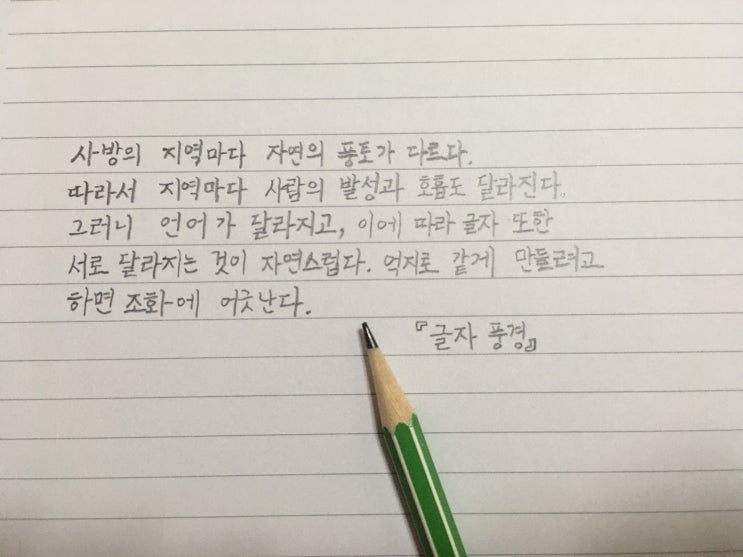 사방의 지역마다 자연의 풍토가 다르다.
따라서 지역마다 사람의 발성과 호흡도 달라진다.
그러니 언어가 달라지고, 이에 따라 글자 또한
서로 달라지는 것이 자연스럽다. 억지로 같게 만들려고
하면 조화에 어긋난다.
『글자 풍경』